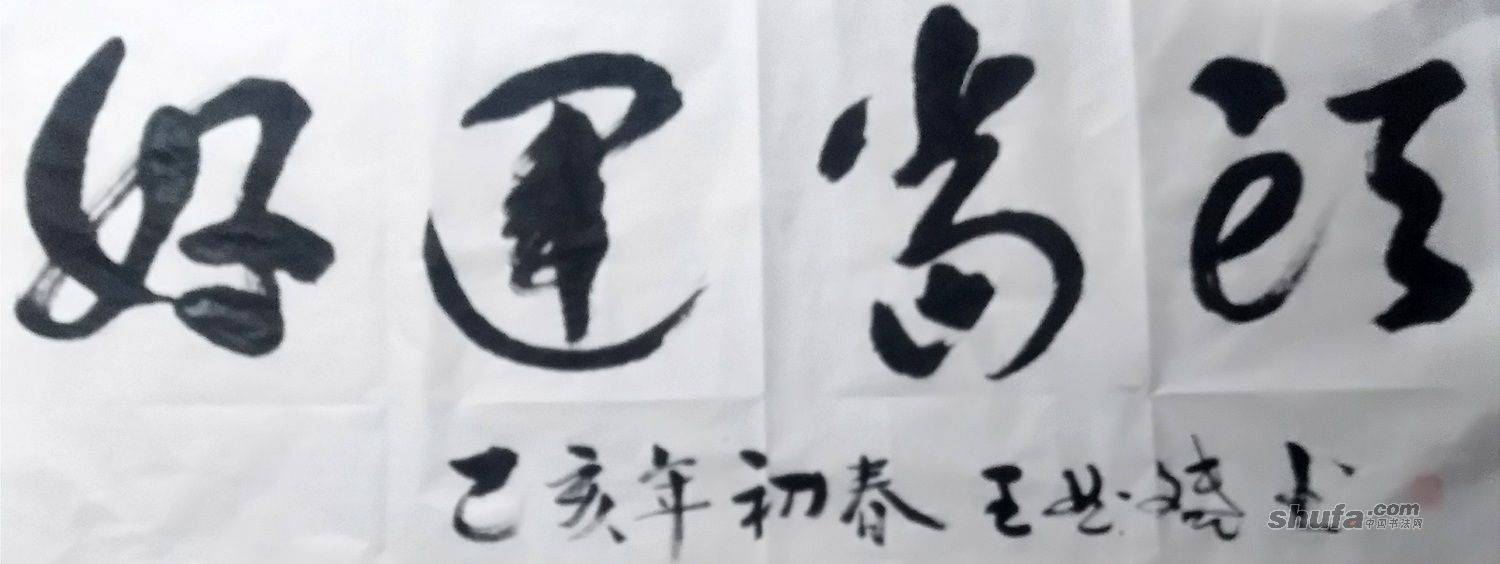 好運當頭
己亥年初春 王 书
shufa.com
中国书法网